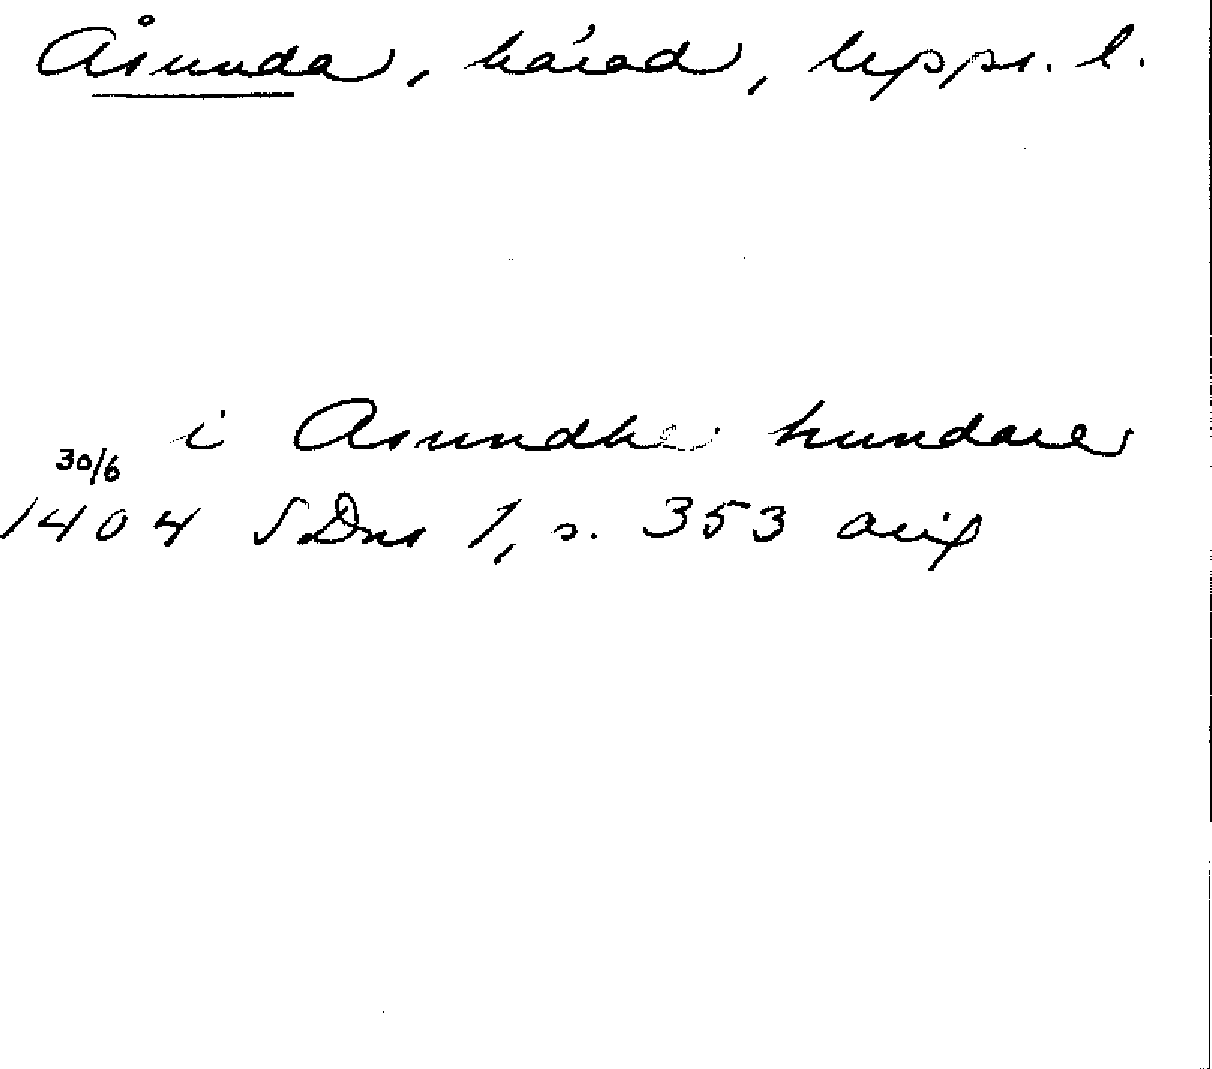 Åsunda, härad, Upps. l.
i Asundhe hundare
30/6
1404 SDns 1, s. 353 avig